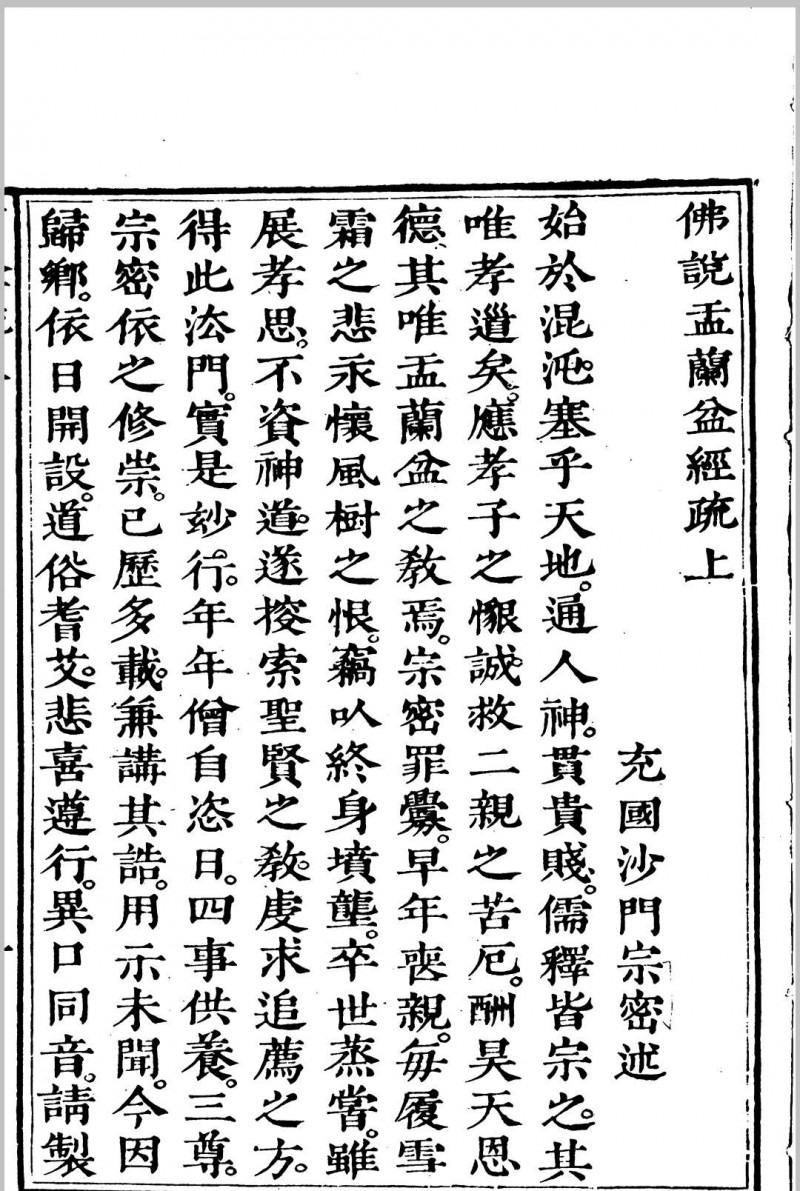 佛說盂蘭盆經疏上
充國沙門宗密述
始於混沌。塞乎天地。通人神。貫貴賤。儒釋皆宗之。其
唯孝道矣。應孝子之懇誠。救二親之苦厄。酬昊天恩
德。其唯盂蘭盆之教焉。宗密罪釁。早年喪親。每履雪
霜之悲。永懷風樹之恨。竊以終身墳壟。卒世蒸嘗。雖
展孝思。不資神道。遂搜索聖賢之教。虔求追薦之方。
得此法門。實是玅行。年年僧自恣日。四事供養。三尊。
宗密依之修崇。已歷多載。兼講其誥。用示未聞。今因
歸鄉。依日開設。道俗耆艾。悲喜遵行。異口同音。請製